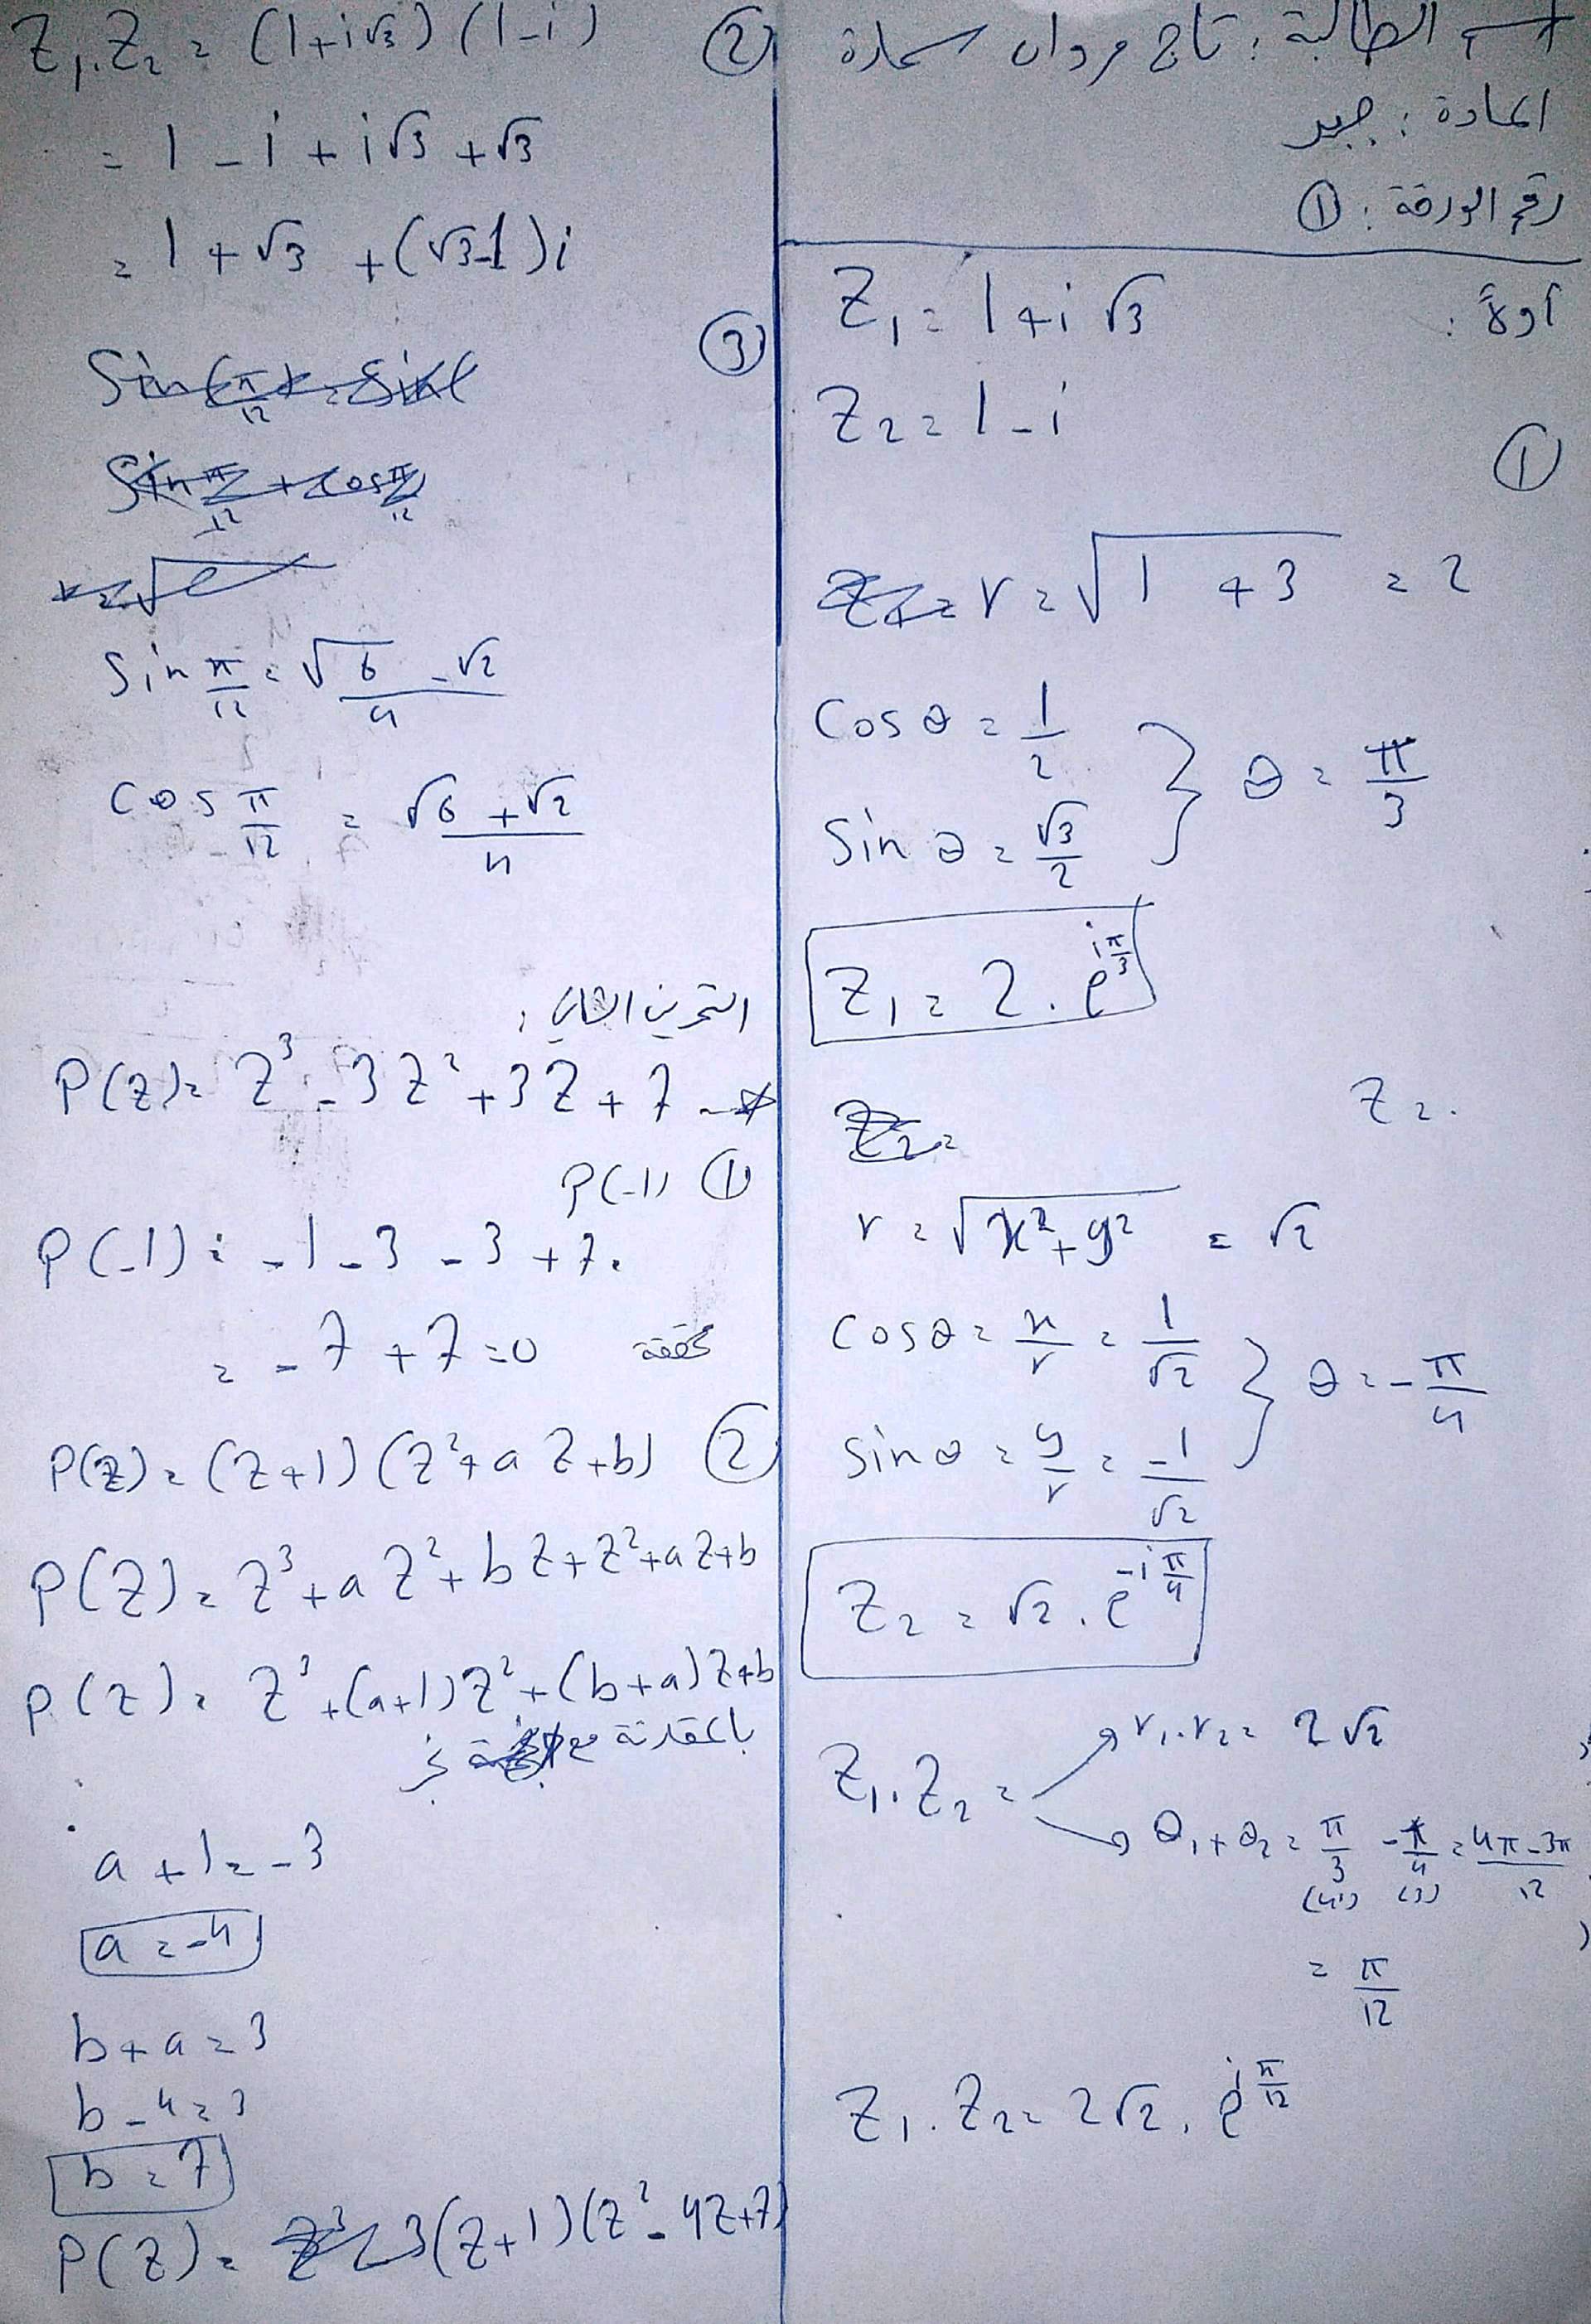 اسم الطالبة: تاج مروان سمارة
المادة: جبر
رقم الورقة: ①
أولاً:
Z₁ = 1 + i√3
Z₂ = 1 - i
①
r = √(1 + 3) = 2
Cos θ = 1/2
Sin θ = √3/2 } θ = π/3
Z₁ = 2 . e^(iπ/3)
Z₂.
r = √(x² + y²) = √2
Cos θ = x/r = 1/√2
Sin θ = y/r = -1/√2 } θ = -π/4
Z₂ = √2 . e^(-iπ/4)
Z₁.Z₂ =
r₁.r₂ = 2√2
θ₁ + θ₂ = π/3 - π/4 = (4π - 3π)/12
(4) (3)
= π/12
Z₁.Z₂ = 2√2 . e^(iπ/12)
② Z₁.Z₂ = (1 + i√3)(1 - i)
= 1 - i + i√3 + √3
= 1 + √3 + (√3 - 1)i
③
Sin π/12 = (√6 - √2)/4
Cos π/12 = (√6 + √2)/4
التمرين الثاني:
P(Z) = Z³ - 3Z² + 3Z + 7
① P(-1)
P(-1) = -1 - 3 - 3 + 7.
= -7 + 7 = 0 محققة
② P(Z) = (Z + 1)(Z² + aZ + b)
P(Z) = Z³ + aZ² + bZ + Z² + aZ + b
P(Z) = Z³ + (a + 1)Z² + (b + a)Z + b
بالمقارنة مع
a + 1 = -3
a = -4
b + a = 3
b - 4 = 3
b = 7
P(Z) = (Z + 1)(Z² - 4Z + 7)